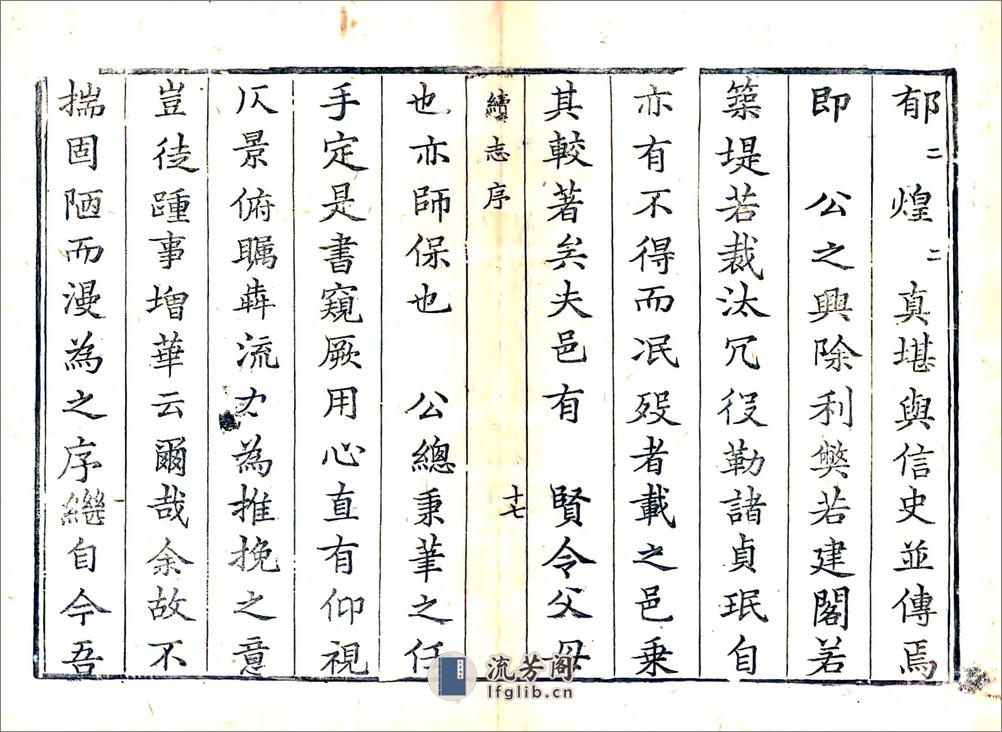 郁二煌二真堪與信史並傳焉
即　公之興除利弊若建閣若
築堤若裁汰冗役勒諸貞珉自
亦有不得而冺歿者載之邑乗
其較著矣夫邑有　賢令父母
續志序　十七
也亦師保也　公總秉筆之任
手定是書窺厥用心直有仰視
仄景俯矚犇流力為推挽之意
豈徒踵事增華云爾哉余故不
揣固陋而漫為之序繼自今吾
流芳阁
lfglib.cn